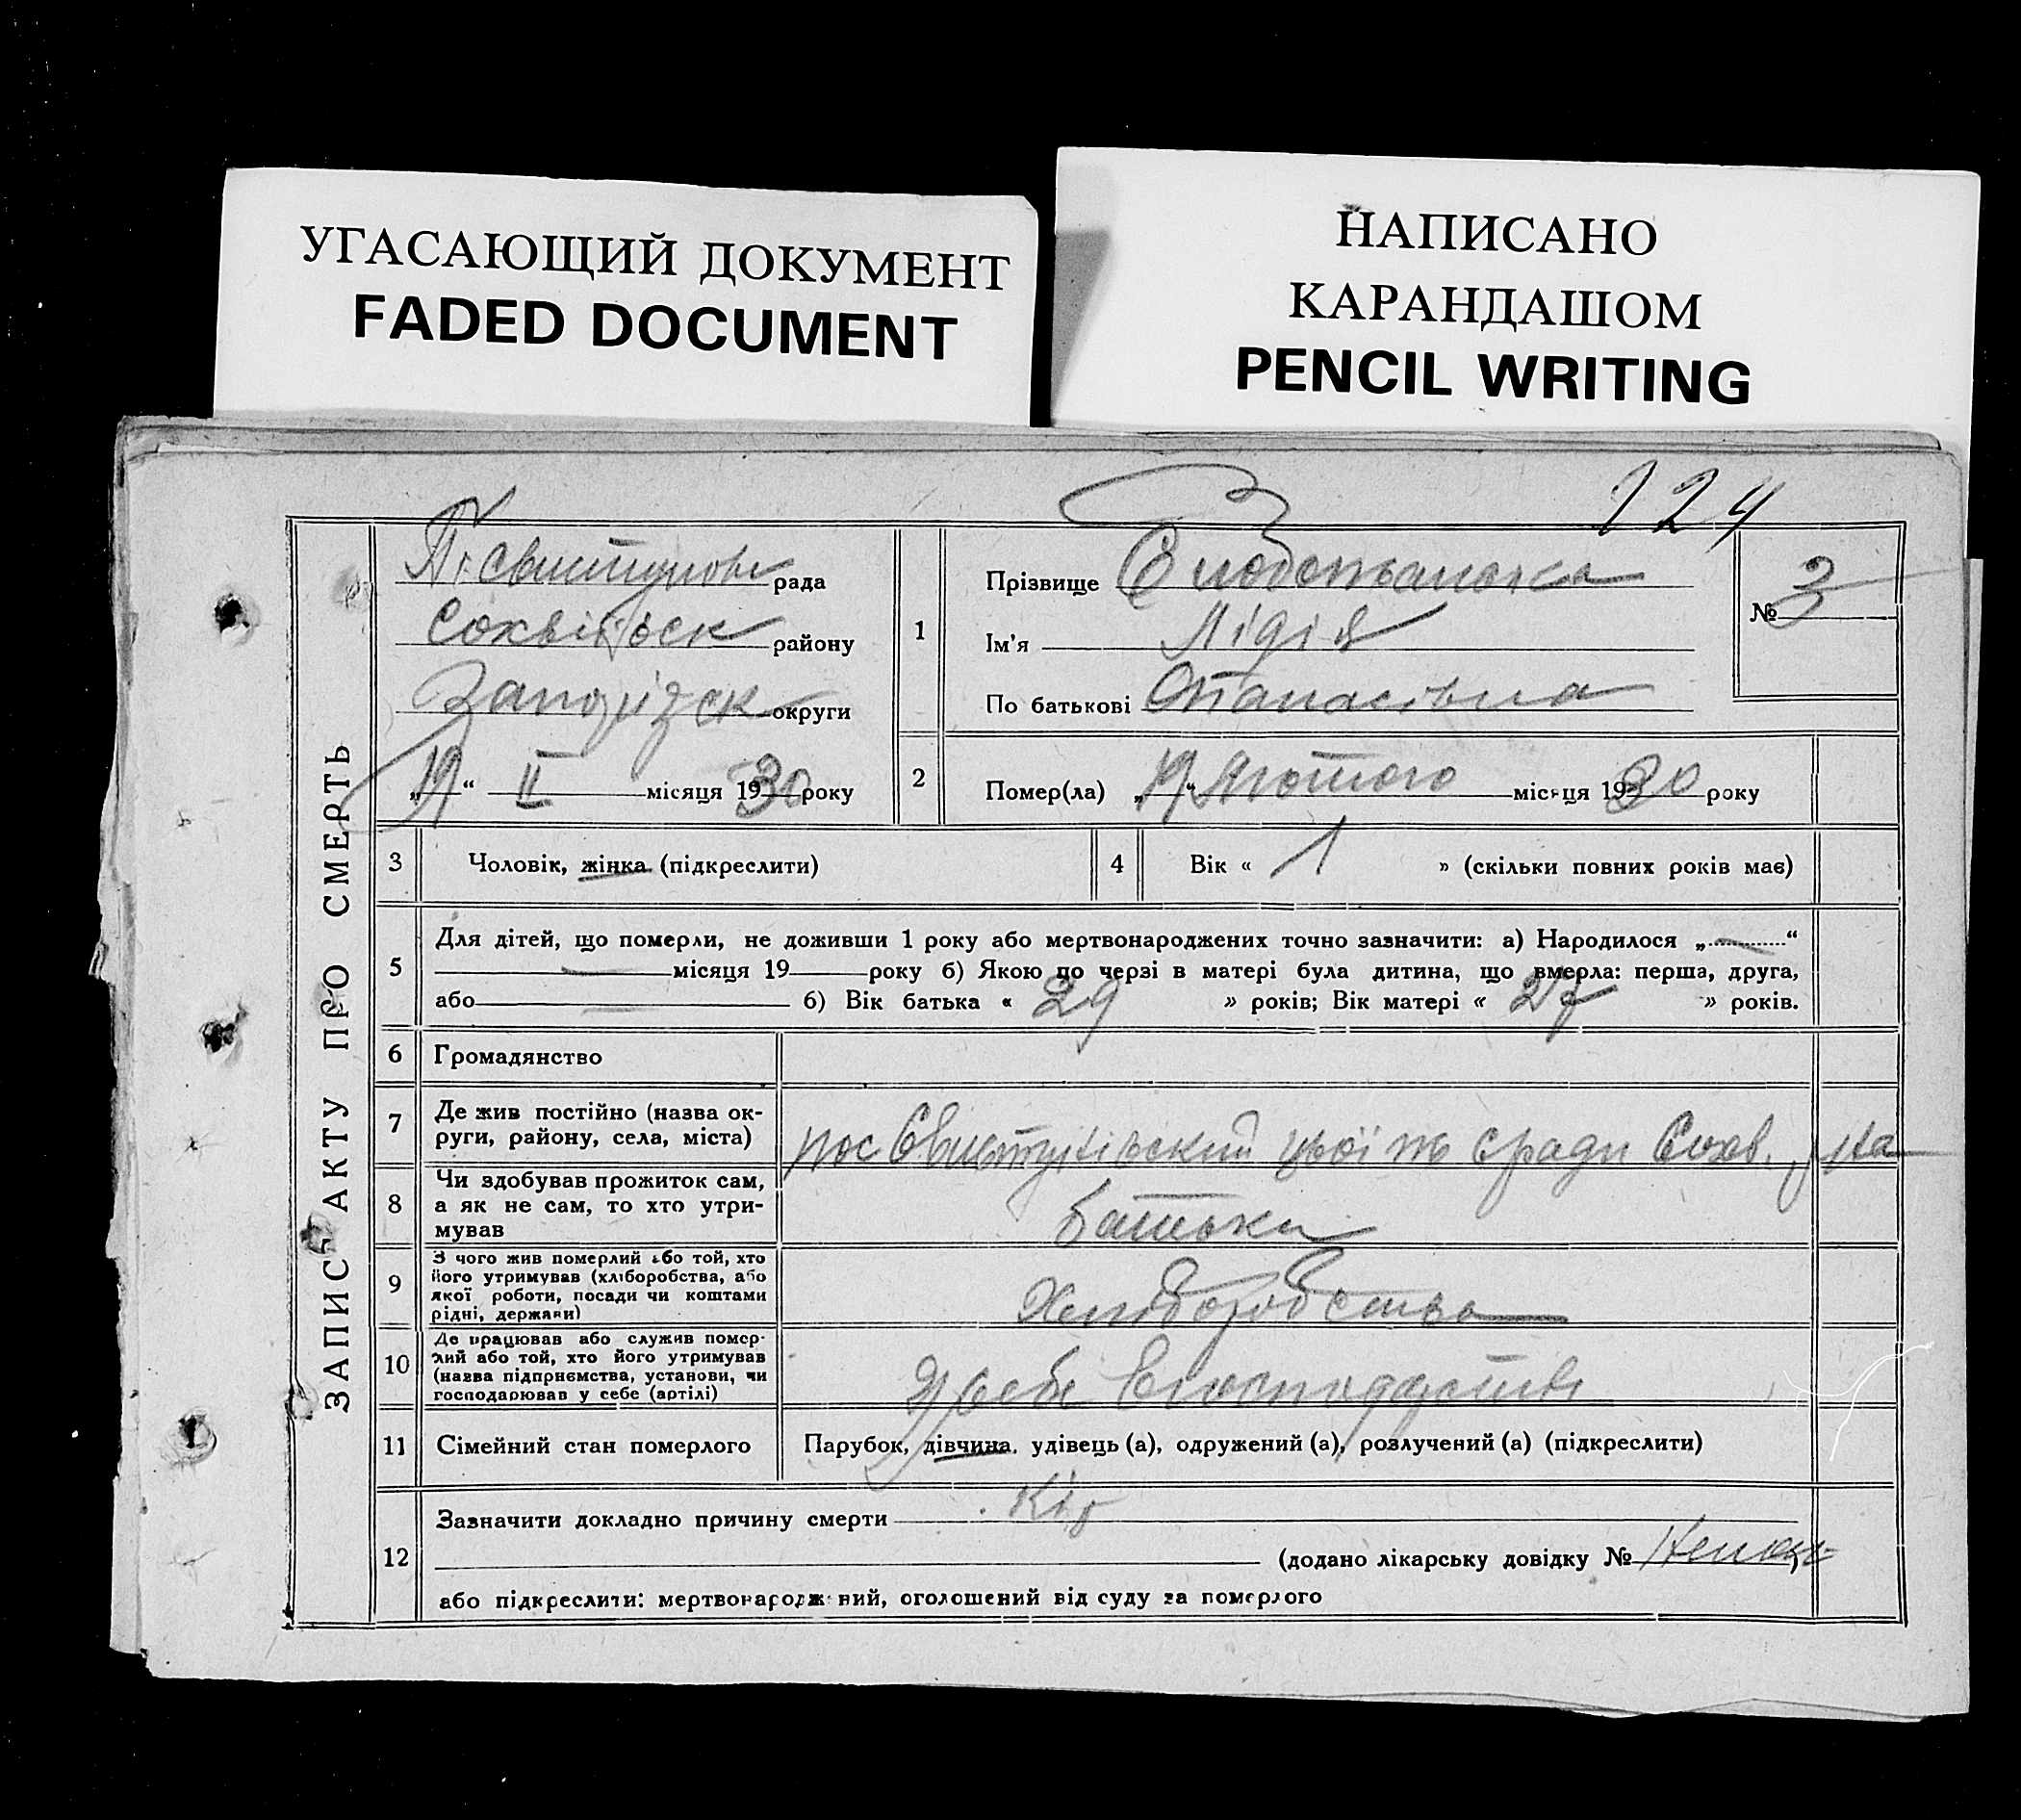 УГАСАЮЩИЙ ДОКУМЕНТ
FADED DOCUMENT
НАПИСАНО
КАРАНДАШОМ
PENCIL WRITING
224
ЗАПИС АКТУ ПРО СМЕРТЬ
рада
району
округи
„19“ II місяця 1930 року
1
Прізвище
Ім'я Лідія
По батькові Опанасівна
№ 3
2
Помер(ла) „19“ Лютого місяця 1930 року
3
Чоловік, жінка (підкреслити)
4
Вік « 1 » (скільки повних років має)
5
Для дітей, що померли, не доживши 1 року або мертвонароджених точно зазначити: а) Народилося „—“
— місяця 19 року б) Якою по черзі в матері була дитина, що вмерла: перша, друга,
або — б) Вік батька « 29 » років; Вік матері « 27 » років.
6
Громадянство
7
Де жив постійно (назва ок-
руги, району, села, міста)
пос Свистунівський цьої ж сради Сохв. р на
8
Чи здобував прожиток сам,
а як не сам, то хто утри-
мував
батьки
9
З чого жив померлий або той, хто
його утримував (хліборобства, або
якої роботи, посади чи коштами
рідні, держави)
Хліборобства
10
Де працював або служив помер-
лий або той, хто його утримував
(назва підприємства, установи, чи
господарював у себе (артілі)
У себе в господарстві
11
Сімейний стан померлого
Парубок, дівчина, удівець (а), одружений (а), розлучений (а) (підкреслити)
12
Зазначити докладно причину смерти Кір
(додано лікарську довідку № )
або підкреслити: мертвонароджений, оголошений від суду за померлого